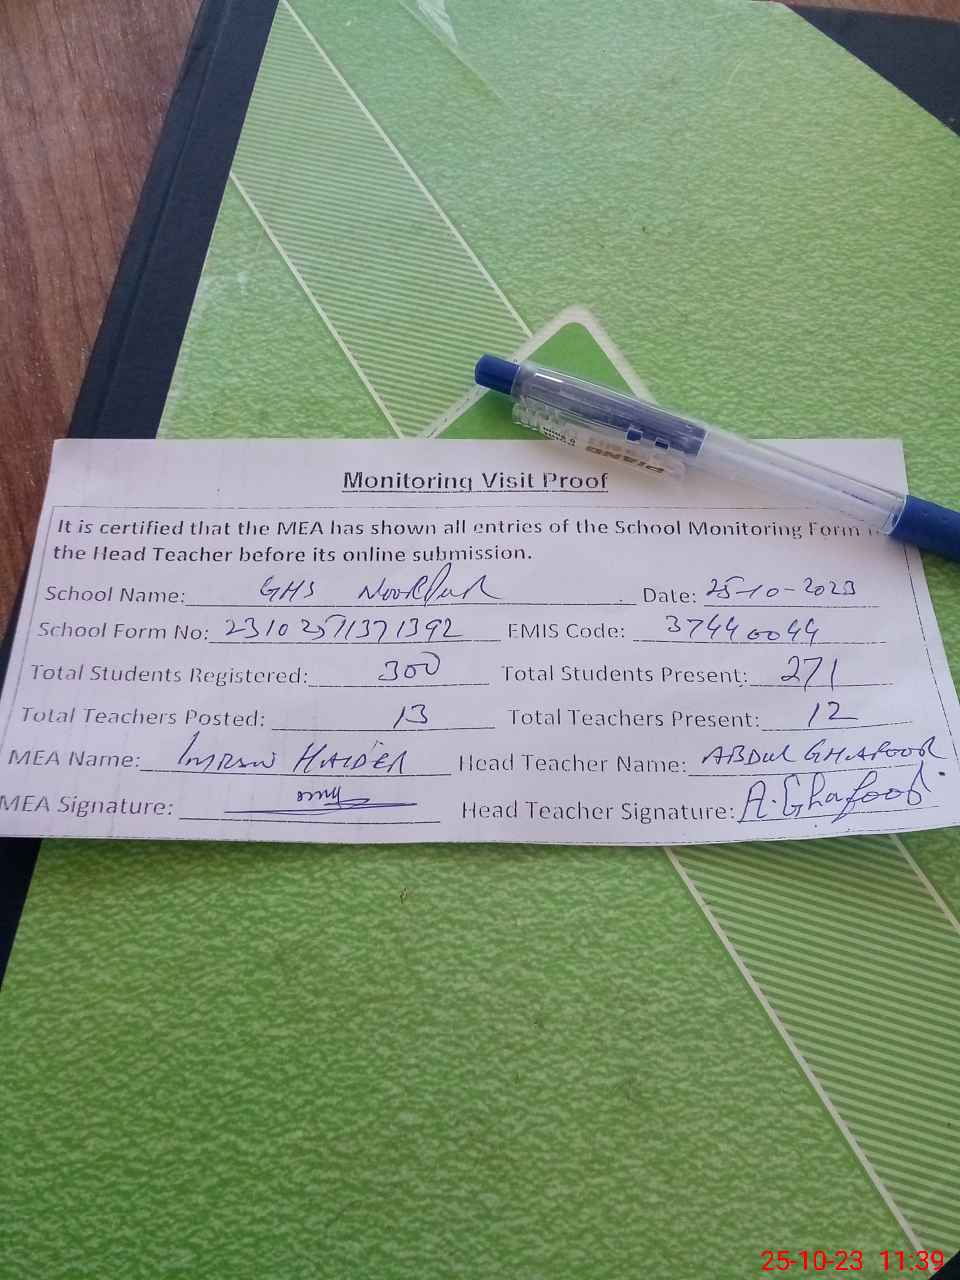 PIANO
Monitoring Visit Proof
It is certified that the MEA has shown all entries of the School Monitoring Form
the Head Teacher before its online submission.
School Name: GHS Noorpur Date: 25-10-2023
School Form No: 23102571371392 EMIS Code: 37440044
Total Students Registered: 300 Total Students Present: 271
Total Teachers Posted: 13 Total Teachers Present: 12
MEA Name: IMRAN HAIDER Head Teacher Name: ABDUL GHAFOOR
MEA Signature: Head Teacher Signature: A.Ghafoor
25-10-23 11:39